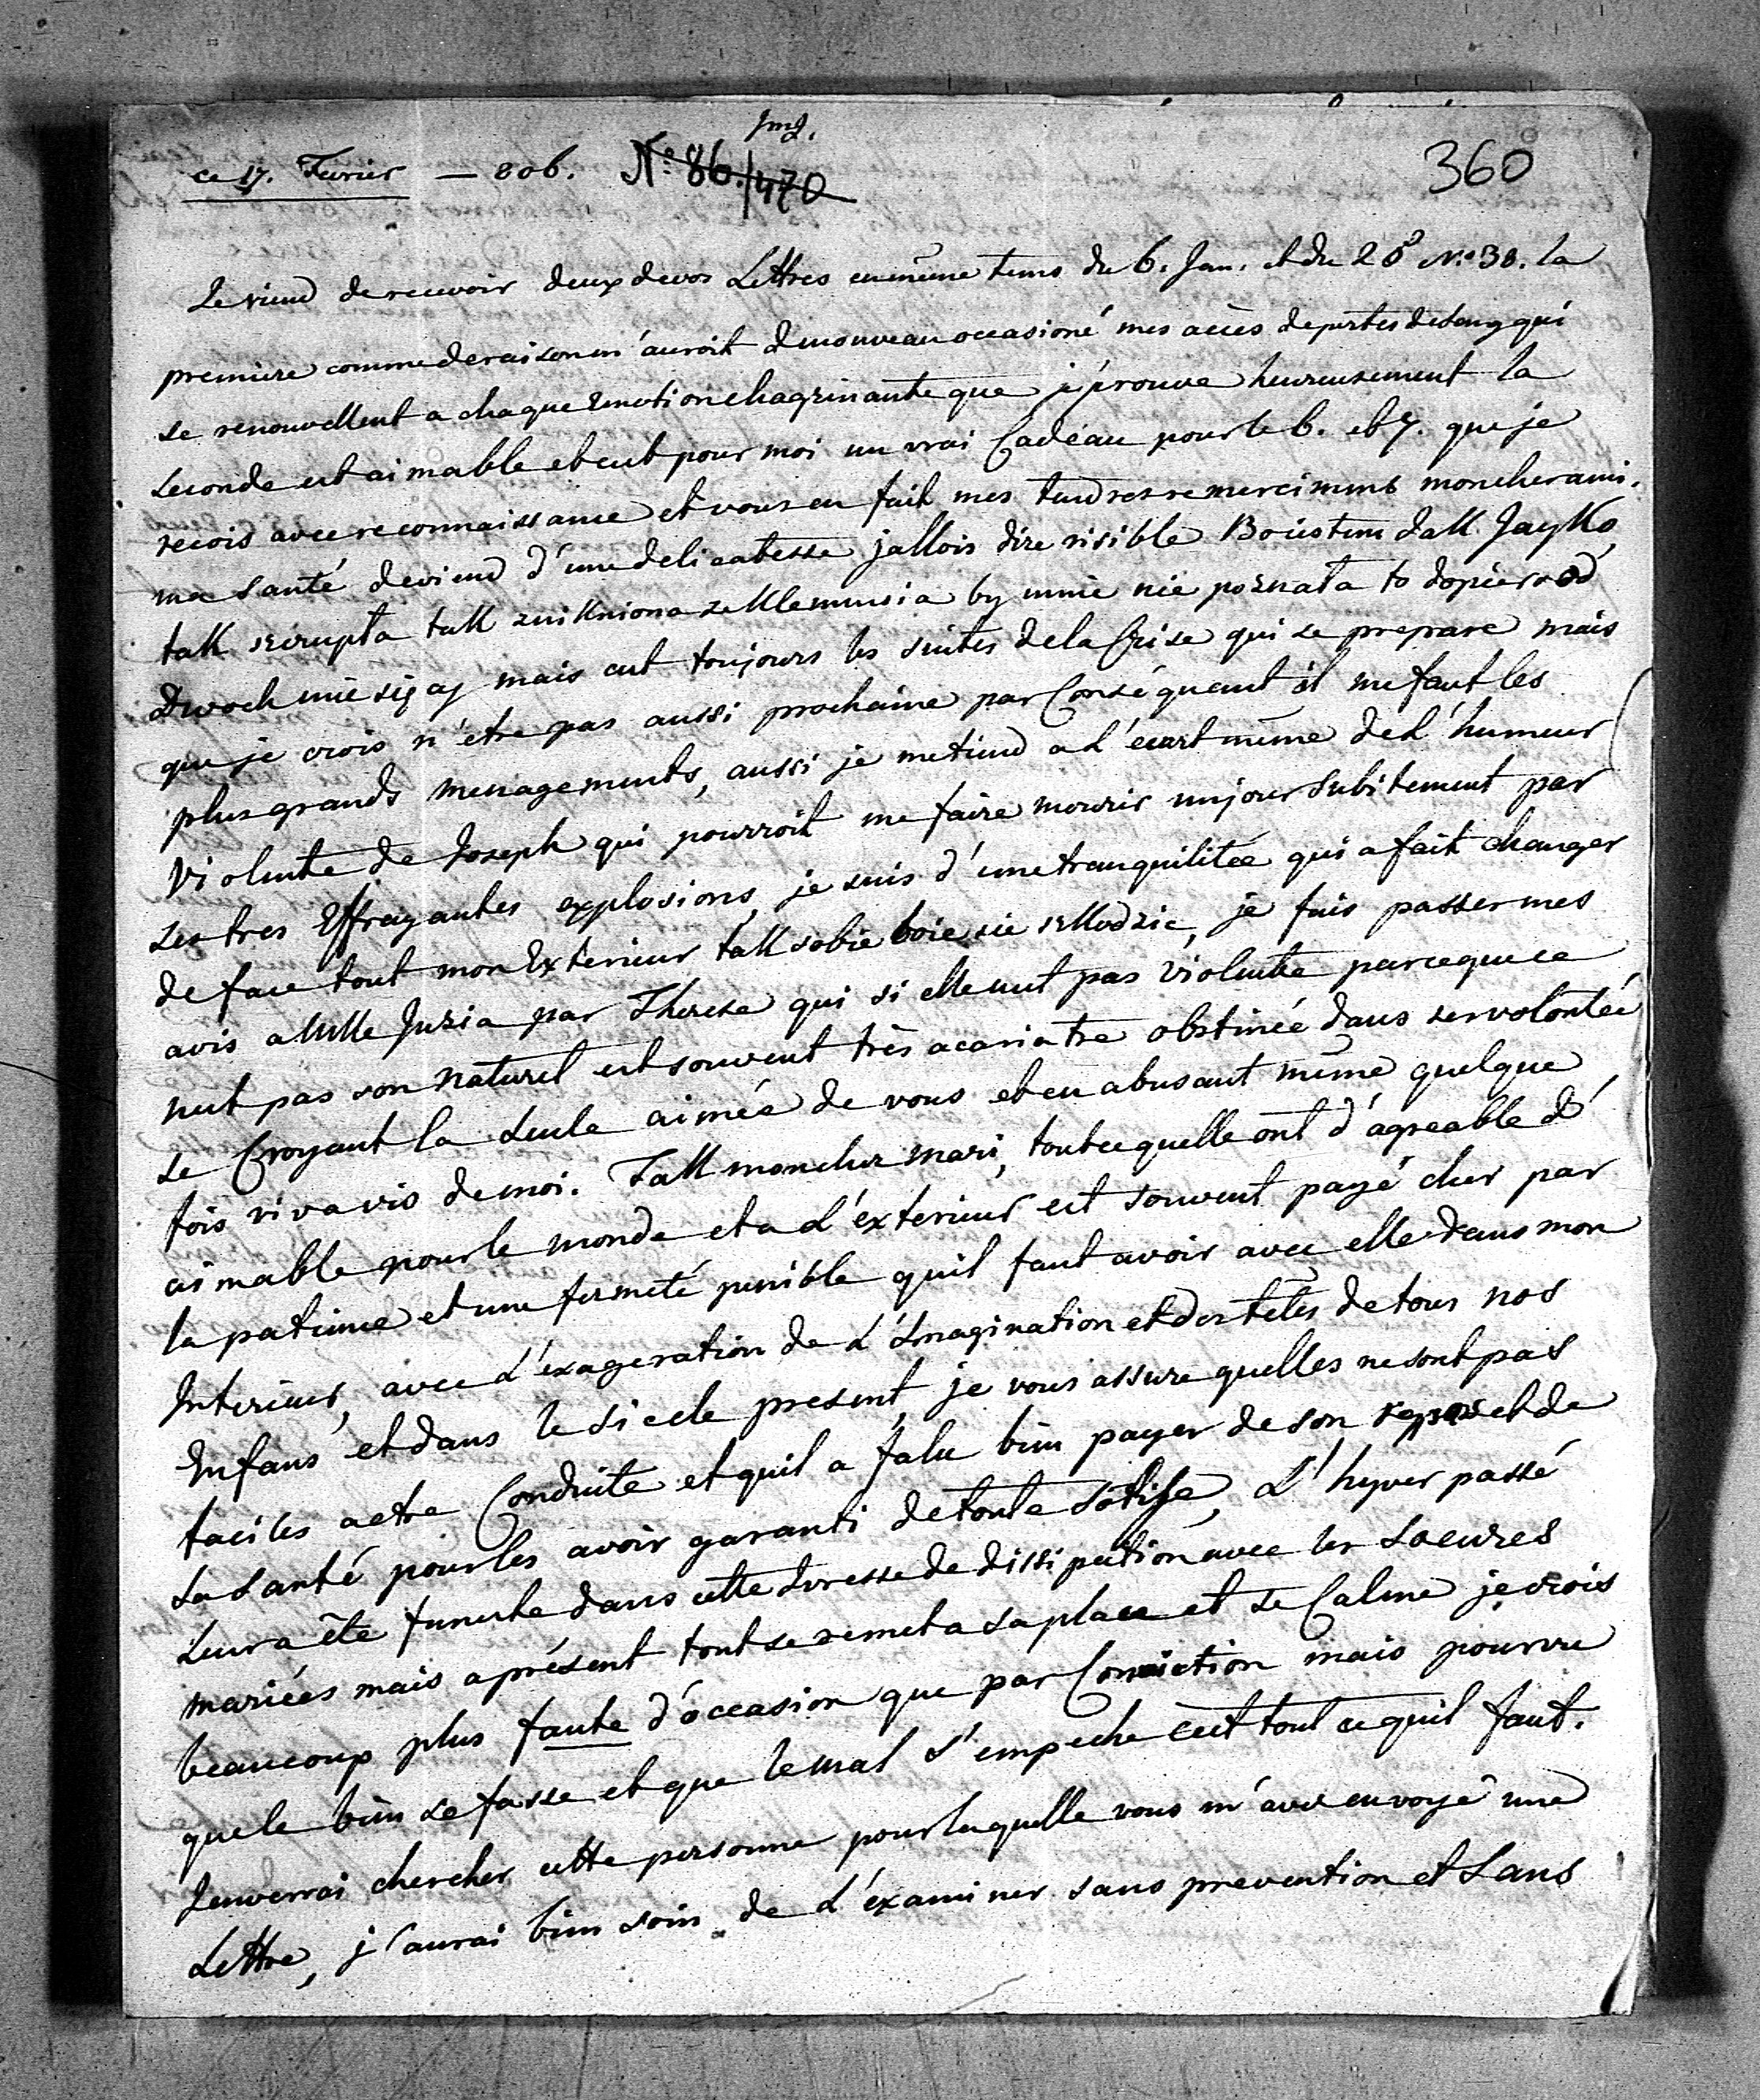 Jmg.
ce 17. Fevrier — 806. N.º 86./470
360
Je viend de recevoir deux de vos Lettres en même tems du 6. Jan. et du 26 N.º 38. la
premiere comme de raison m'auroit de nouveau occasioné mes accès de pertes de sang qui
se renouvellent a chaque Emotion chagrinante que j'éprouve heureusement la
seconde est aimable et est pour moi un vrai Cadéau pour le 6. et 7. que je
recois avec reconnaissance et vous en fait mes tendres remercimens mon cher ami.
ma santé deviend d'une delicatesse j'allois dire risible Boüstem dall Jayko
tak scirupła tak znikniona ze Klemunsia by mnie nie poznała to dopiero od
dwoch miesięcy mais cest toujours les suites de la Crise qui se prepare mais
que je crois n'étre pas aussi prochaine par Conséquent il me faut les
plus grands menagements, aussi je me tiend a l'écart même de l'humeur
Violente de Joseph qui pourroit me faire mourir un jour subitement par
ses tres Effrayantes explosions, je suis d'une tranquilitée qui a fait changer
de face tout mon Exterieur tak sobie boie sie szkodzic, je fais passer mes
avis a Mlle Juzia par Therese qui si elle nest pas violente parceque ce
nest pas son naturel est souvent très acariatre obstinée dans ses volontée
se Croyant la seule aimée de vous et en abusant même quelque
fois vis a vis de moi. Tak mon cher mari, tout ce quelle ont d'agreable d'
aimable pour le monde et a l'éxterieur est souvent payé cher par
la patience et une fermeté penible quil faut avoir avec elle dans mon
Interieur, avec l'exageration de l'Imagination et des têtes de tous nos
Enfans et dans le siecle present, je vous assure quelles ne sont pas
faciles a etre Conduite et quil a falu bien payer de son repos et de
sa santé pour les avoir garanti de toute sotise, L'hyver passé
leur a été funeste dans cette Ivresse de dissipation avec les soeures
mariées mais aprésent tout se remet a sa place et se Calme je crois
beaucoup plus faute d'occasion que par Conviction mais pourvu
que le bien se fasse et que le mal s'empeche cest tout ce quil faut.
Jenverrai chercher cette personne pour laquelle vous m'avez envoyé une
Lettre, j'aurai bien soin de l'éxaminer sans prevention et sans